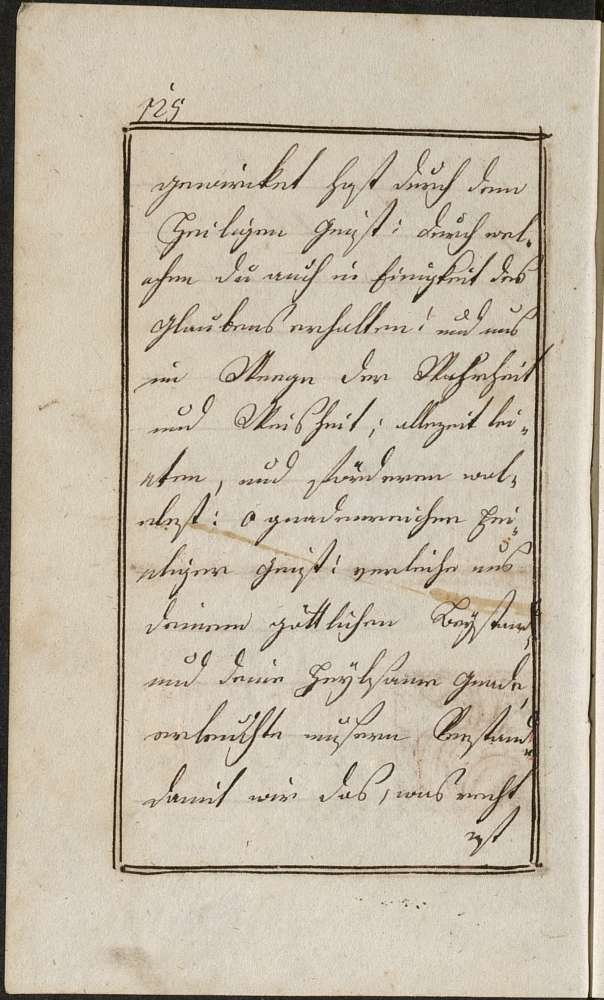 125
gewircket hast durch dem
Heiligen Geist: durch wel-
chen du auch in Einigkeit des
Glaubens erhalten! und uns
im Weege der Wahrheit
und Weisheit; allezeit lei-
ten, und förderen wol-
lest: O gnadenreicher Hei-
liger Geist! verleihe uns
deinem göttlichen Beystand,
und deine Heylsame Gnade,
erleuchte unsern Verstand
damit wir das, was recht
ist